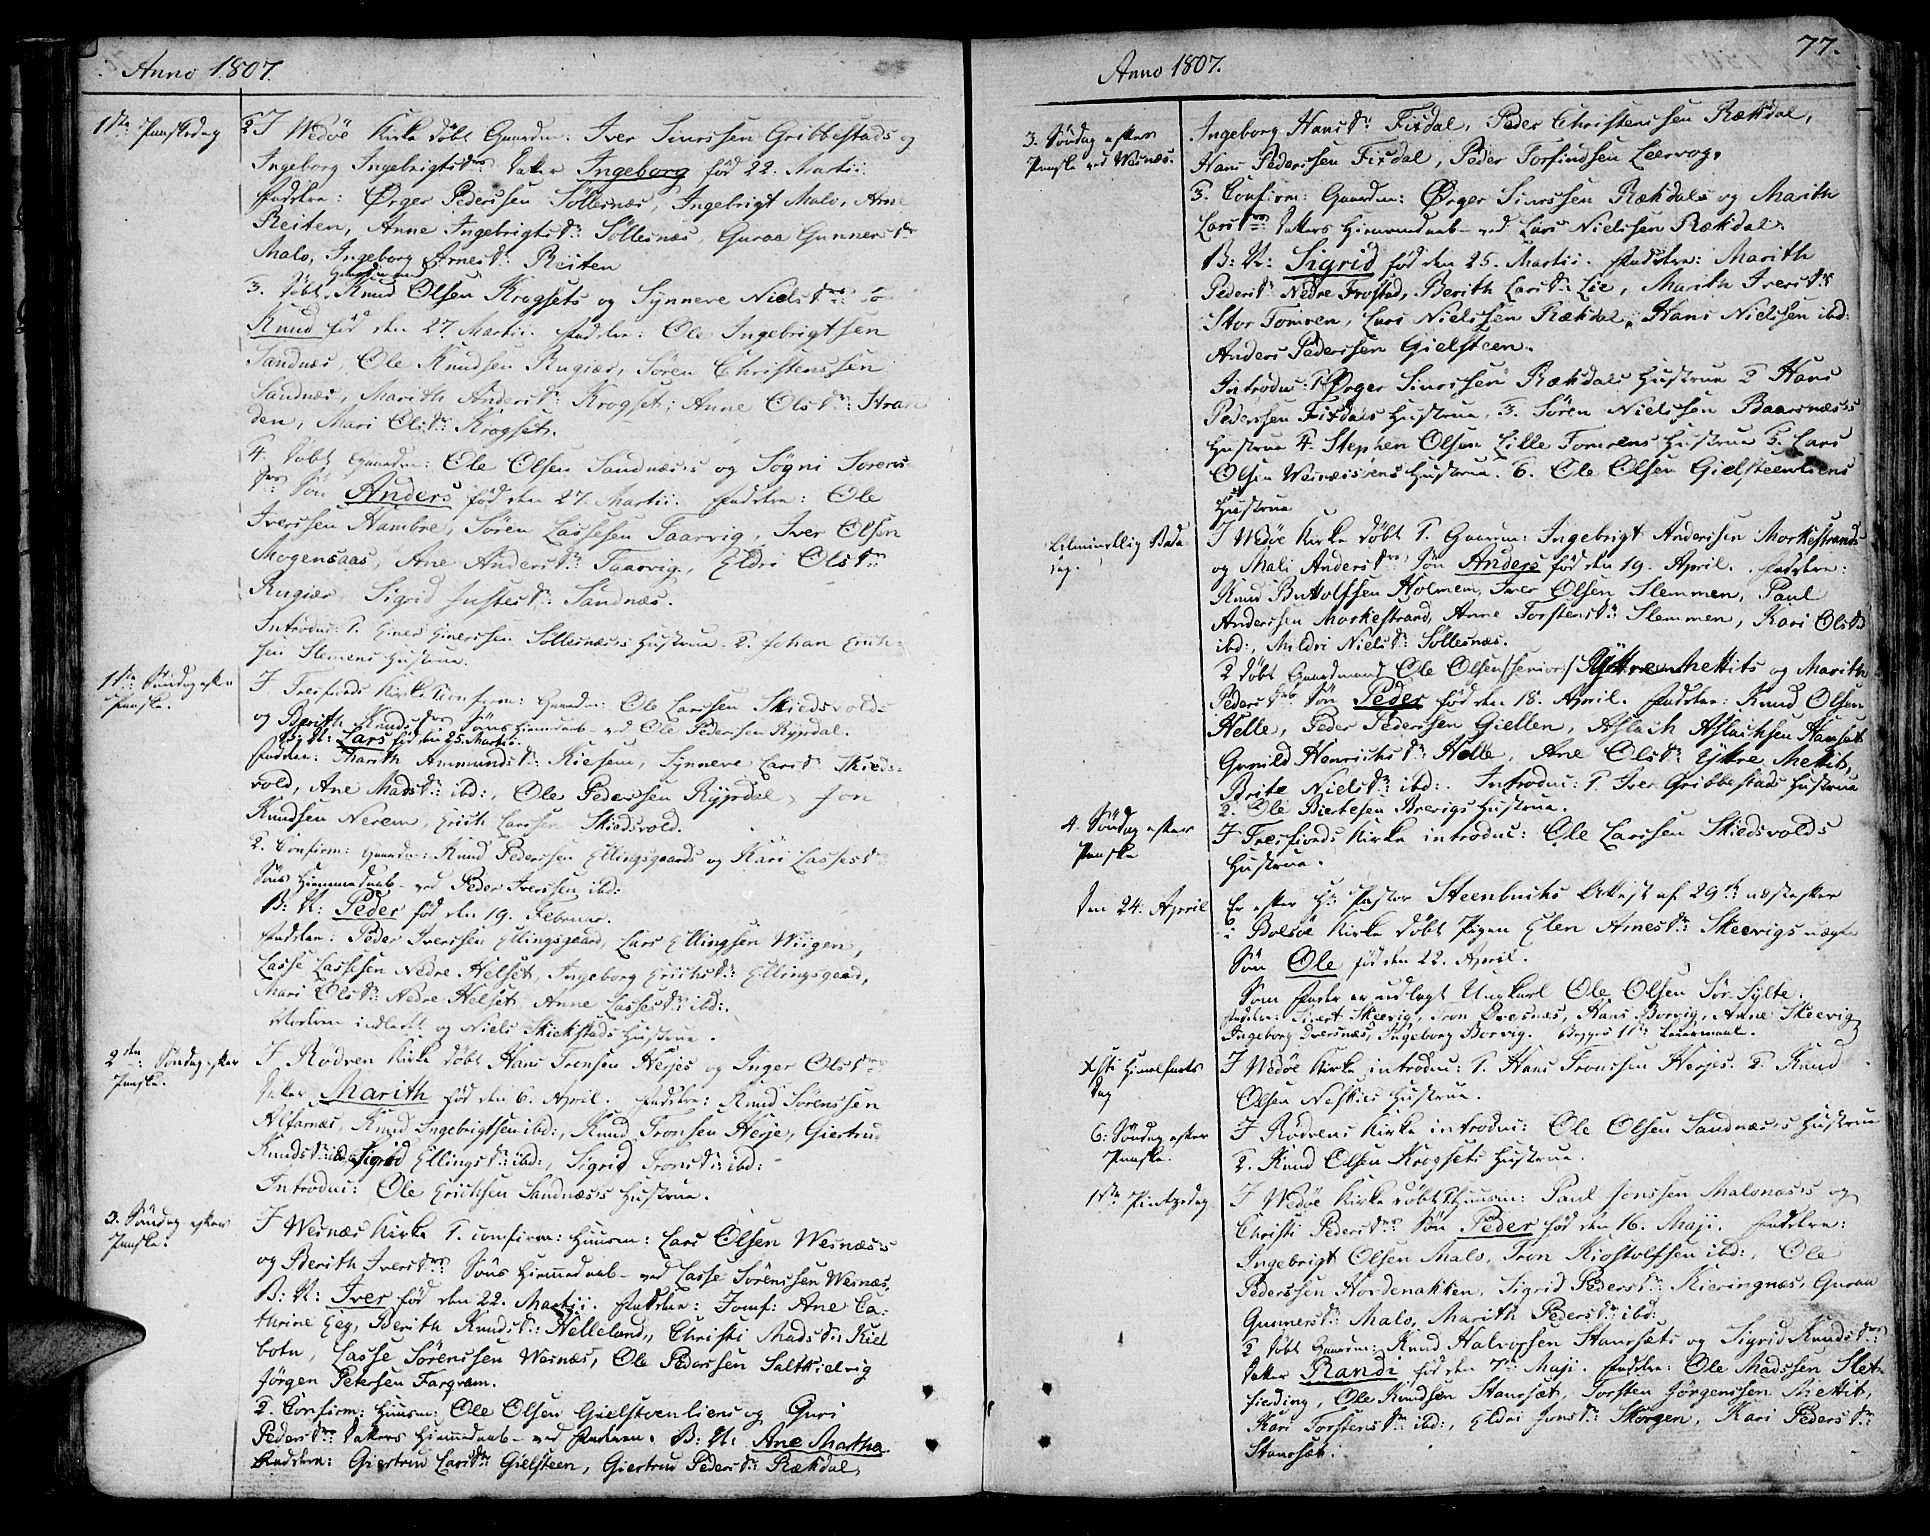 Anno 1807.
1ste Paaskedag
2 I Wedøe Kirke døbt Gaardm: Iver Siurssen Gribbestads og
Ingeborg Ingebrigtsdrs Datter Ingeborg fød 22. Martii
Faddere: Ørger Pederssen Søllesnæs, Ingebrigt Malo, Arne
Reiten, Anne Ingebrigtsdr: Søllesnæs, Guraa Gunnersdr
Malo, Ingeborg Arnesdr: Reiten
3. døbt Gaardmand Knud Olsen Krogsets og Synneve Nielsdrs Søn
Knud fød den 27. Martii. Faddere: Ole Ingebrigtsen
Sandnæs, Ole Knudsen Rugiær, Søren Christenssen
Sandnæs, Marith Andersdr: Krogset, Anne Olsdr: Stran
den, Mari Olsdr: Krogset.
4. døbt Gaardm: Ole Olsen Sandnæss og Søgni Sørens-
drs Søn Anders fød den 27. Martii. Faddere: Ole
Iverssen Hambre, Søren Lassesen Taarvig, Iver Olsen
Mogensaas, Ane Andersdr: Taarvig, Eldri Olsdr
Rugiær, Sigrid Justesdr: Sandnæs.
Introduc: 1. Einer Einerssen Søllesnæss Hustrue 2. Johan Erich-
sen Slemens Hustrue.
1ste Søndag efter
Paaske.
I Tresfiords Kirke confirm: Gaardm: Ole Larssen Skiedsvolds
og Berith Knudsdrs Søns Hiemmedaab ved Ole Pederssen Kyrdal.
B: N: Lars fød den 25. Martii.
Faddere: Marith Ammundsdr: Kiesen, Synneve Larsdr Skieds-
vold, Ane Madsdr: ibd:, Ole Pederssen Rypdal, Jon
Knudsen Nerem, Erich Larssen Skiedsvold.
2. Confirm: Gaardm: Knud Pederssen Ellingsgaards og Kari Lassesdrs
Søns Hiemmedaab ved Peder Iverssen ibd:
B: N: Peder fød den 19. Februar.
Faddere: Peder Iverssen Ellingsgaard, Lars Ellingsen Wiigen,
Lasse Lassesen Nedre Helset, Ingeborg Erichsdr: Ellingsgaard,
Mari Olsdr: Nedre Helset, Anne Lassesdr ibd:.
Moderen indledet og Niels Skiekstads Hustrue.
2den Søndag efter
Paaske.
I Rødven Kirke døbt Hans Tronsen Herjes og Inger Olsdrs
Datter Marith fød den 6. April. Faddere: Knud Sørenssen
Alfarnæs, Knud Ingebrigtsen ibd:, Knud Tronsen Herje, Giertrud
Knudsdr: ibd:, Sigrid Ellingsdr: ibd:, Sigrid Tronsdr: ibd:
Introduc: Ole Erichsen Sandnæss Hustrue.
3. Søndag efter
Paaske.
I Wesnæs Kirke 1. confirm: Huusm: Lars Olsen Wesnæss
og Berith Iversdrs Søns Hiemmedaab ved Lasse Sørenssen Wesnæs.
B: N: Iver fød den 22. Martii. Faddere: Jomf: Ane Ca-
thrine Eeg, Berith Knudsdr: Helleland, Christi Madsdr Kiel
botn, Lasse Sørenssen Wesnæs, Ole Pederssen Saltkielvig
Jørgen Petersen Fargvam.
2. Confirm: Huusm: Ole Olsen Gielsteenliens og Guri
Pedersdrs Datters Hiemmedaab ved Faderen. B: N: Ane Martha
Faddere: Giertrud Larsdr: Gielsteen, Giertrud Pedersdr: Rækdal,
77.
Anno 1807.
3. Søndag efter
Paaske ved Wesnæs.
Ingeborg Hansdr: Fixdal, Peder Christenssen Rækdal,
Hans Pederssen Fixdal, Peder Torfindsen Leervog.
3. Confirm: Gaardm: Ørger Siurssen Rækdals og Marith
Larsdrs Datters Hiemmedaab ved Lars Nielssen Rækdal.
B: N: Sigrid fød den 25. Martii. Faddere: Marith
Pedersdr Nedre Frostad, Berith Larsdr: Lie, Marith Iversdr
Stor Tomren, Lars Nielssen Rækdal, Hans Nielssen ibd:
Anders Pederssen Gielsteen.
Introduc: 1. Ørger Siurssen Rækdals Hustrue 2 Hans
Pederssen Fixdals Hustrue, 3. Søren Nielssen Baarsnæss
Hustrue 4. Stephen Olsen Lille Tomrens Hustrue 5. Lars
Olsen Wesnæssens Hustrue. 6. Ole Olsen Gielsteenliens
Hustrue
Almindelig Bede
dag.
I Wedøe Kirke døbt 1. Gaardm: Ingebrigt Anderssen Morkestrands
og Mali Andersdrs Søn Anders fød den 19. April. Faddere:
Knud Buttolfsen Holmem, Iver Olsen Slemmen, Paul
Anderssen Morkestrand, Anne Torstensdr: Slemmen, Kari Olsdr
ibd:, Mildri Nielsdr: Søllesnæs.
2 døbt Gaardmand Ole Olsen /senior/ Ytre Mettits og Marith
Pedersdrs Søn Peder fød den 18. April. Faddere: Knud Olsen
Helle, Peder Pederssen Gielten, Aslach Aslachsen Hauset
Gunild Henrichsdr: Helle, Ane Olsdr Ytre Mettit,
Brite Nielsdr: ibd:. Introduc: 1. Iver Gribbestads Hustrue
2. Ole Biertesen Brevigs Hustrue.
4. Søndag efter
Paaske
I Tresfiords Kirke introduc: Ole Larssen Skiedsvolds
Hustrue.
den 24. April
Er efter Hr: Pastor Steenbuchs Attest af 29de næstefter
i Bolsøe Kirke døbt Pigen Elen Arnesdr: Skeevigs uægte
Søn Ole fød den 22. April.
Som Fader er udlagt Ungkarl Ole Olsen Sør Sylte.
Faddere: Sivert Skeevig, Tron Dversnæs, Hans Borvig, Anne Skeevig
Ingeborg Dversnæs, Ingeborg Borvig. Begges 1ste Leiermaal.
Xsti Himelfarts
dag
I Wedøe Kirke introduc: 1. Hans Tronssen Herjes. 2. Knud
Olsen Neskies Hustrue.
6. Søndag efter
Paaske.
I Rødvens Kirke introduc: Ole Olsen Sandnæss Hustrue
2. Knud Olsen Krogsets Hustrue.
1ste Pintzedag
I Wedøe Kirke døbt 1 Huusm: Paul Jenssen Malonæss og
Christi Pedersdrs Søn Peder fød den 16. Maji. Faddere:
Ingebrigt Olsen Malo, Tron Kiostolfsen ibd:, Ole
Pederssen Nordenakken, Sigrid Pedersdr: Kieringnæs, Guraa
Gunnersdr: Malo, Marith Pedersdr: ibd:
2 døbt Gaardm: Knud Halvorsen Staursæts og Sigrid Knudsdrs
Datter Randi fød den 7de Maji. Faddere: Ole Madssen Slet-
fieding, Ole Knudsen Staursæt, Torsten Jørgenssen Mettit,
Kari Torstensdr: ibd:, Eldri Jonsdr: Skorgen, Kari Pedersdr:
Staursæt.